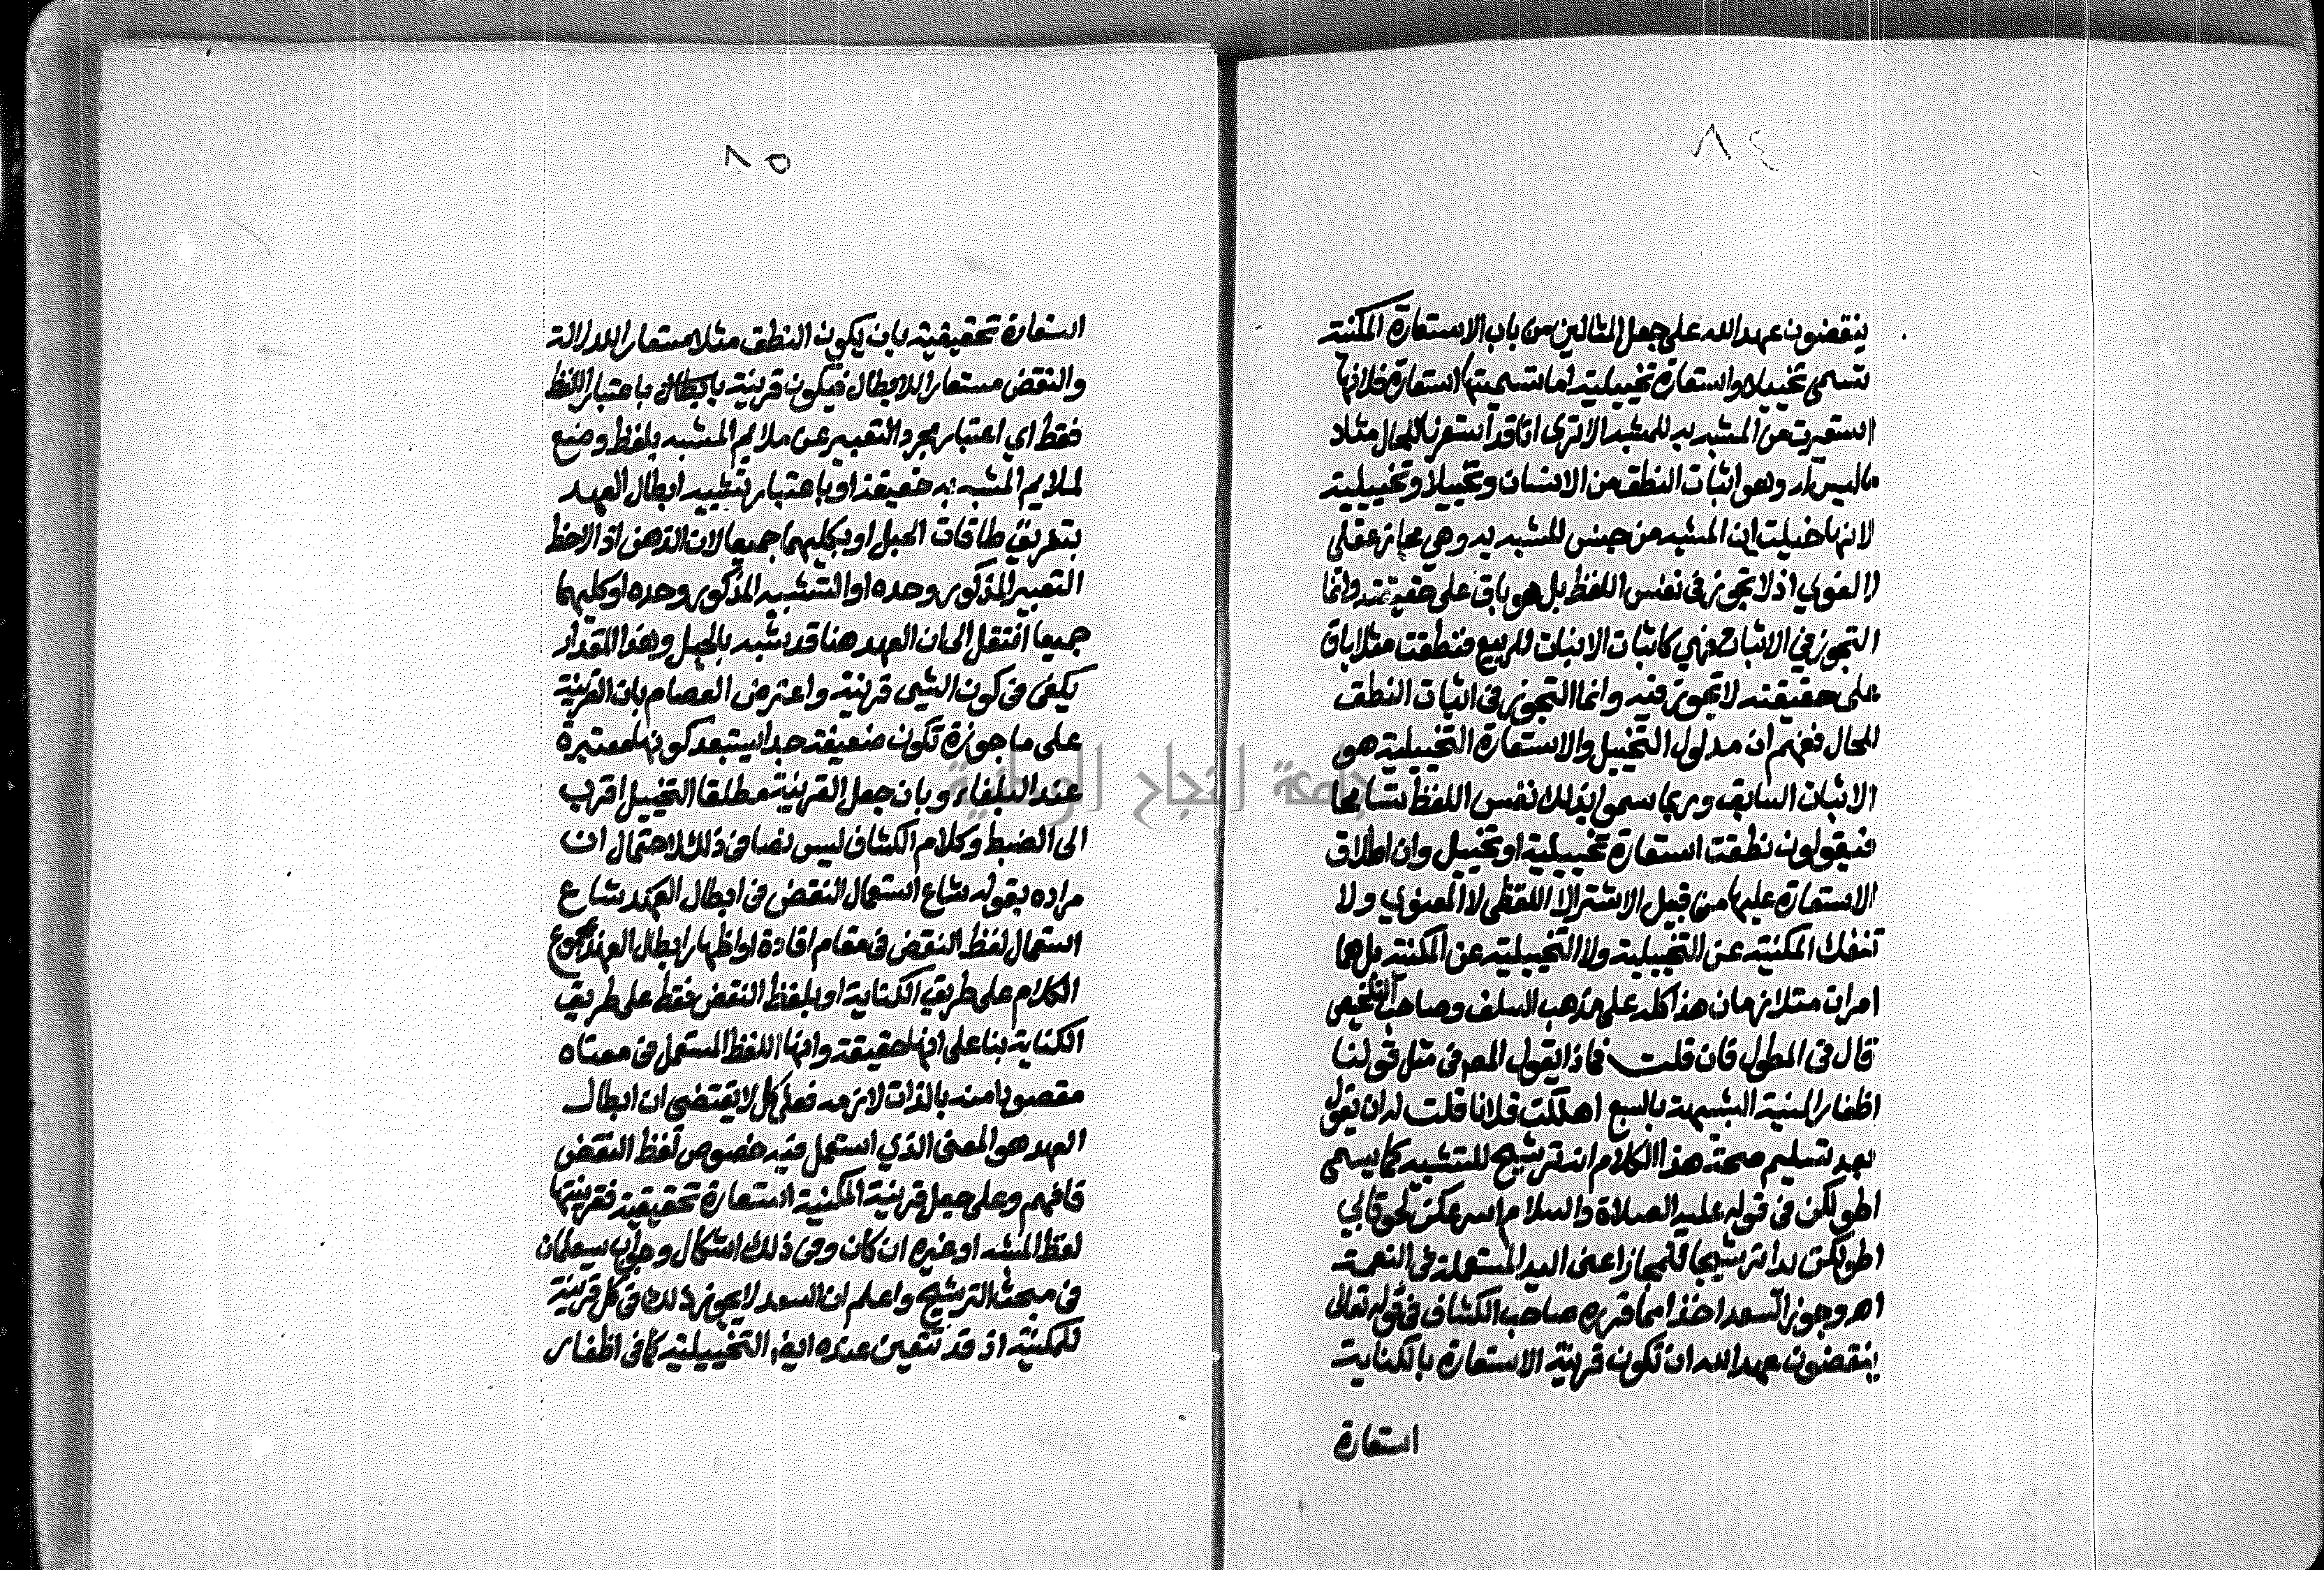 ٨٤
ينقضون عهد الله على جعل المثالين من باب الاستعارة المكنية
تسمى تخييلا واستعارة تخييلية اما تسميتها استعارة فلانها
استعيرت من المشبه به للمشبه الا ترى انا قد استعرنا للحال مثلا
ما ليس له وهو اثبات النطق من الانسان وتخييلا وتخييلية
لانها خيلت ان المشبه من جنس المشبه به وهي مجاز عقلي
لا لغوي اذ لا تجوز في نفس اللفظ بل هو باق على حقيقته وانما
التجوز في الاثبات فهي كاثبات الانبات للربيع فنطقت مثلا باق
على حقيقته لا تجوز فيه وانما التجوز في اثبات النطق
للحال ففهم ان مدلول التخييل والاستعارة التخييلية هو
الاثبات السابق وربما سموا بذلك نفس اللفظ تسامحا
فيقولون نطقت استعارة تخييلية او تخييل وان اطلاق
الاستعارة عليها من قبيل الاشتراك اللفظي لا المعنوي ولا
تنفك المكنية عن التخييلية ولا التخييلية عن المكنية بل هما
امران متلازمان هذا كله على مذهب السلف وصاحب التلخيص
قال في المطول فان قلت فماذا يقول المص في مثل قولنا
اظفار المنية الشبيهة بالسبع اهلكت فلانا قلت له ان يقول
بعد تسليم صحة هذا الكلام انه ترشيح للتشبيه كما يسمى
اطولكن في قوله عليه الصلاة والسلام اسرعكن لحوقا بي
اطولكن يدا ترشيحا للمجاز اعنى اليد المستعملة في النعمة
اهـ وجوز السعد اخذا مما قرره صاحب الكشاف في قوله تعالى
ينقضون عهد الله ان تكون قرينة الاستعارة بالكناية
استعارة
٨٥
استعارة تحقيقية بان يكون النطق مثلا مستعارا للدلالة
والنقض مستعارا للابطال فيكون قرينة باعتبار اللفظ
فقط اي اعتبار مجرد التعبير عن ملايم المشبه بلفظ وضع
لملايم المشبه به حقيقة او باعتبار تشبيه ابطال العهد
بتفريق طاقات الحبل او بكليهما جميعا لان الذهن اذا لاحظ
التعبير المذكور وحده او التشبيه المذكور وحده او كليهما
جميعا انتقل الى ان العهد هنا قد شبه بالحبل وهذا المقدار
يكفى في كون الشيى قرينة واعترض العصام بان القرينة
على ما جوزه تكون ضعيفة جدا يستبعد كونها معتبرة
عند البلغاء وبان جعل القرينة مطلقا التخييل اقرب
الى الضبط وكلام الكشاف ليس نصا في ذلك لاحتمال ان
مراده بقوله شاع استعمال النقض في ابطال العهد شاع
استعمال لفظ النقض في مقام افادة او اظهار ابطال العهد بمجموع
الكلام على طريق الكناية او بلفظ النقض فقط على طريق
الكناية بناء على انها حقيقة وانها اللفظ المستعمل في معناه
مقصودا منه بالذات لازمه فعلى كل لا يقتضى ان ابطال
العهد هو المعنى الذي استعمل فيه خصوص لفظ النقض
فافهم وعلى جعل قرينة المكنية استعارة تحقيقية فقرينتها
لفظ المشبه او غيره ان كان وفى ذلك اشكال وجواب سيعلمان
فى مبحث الترشيح واعلم ان السعد لا يجوز ذلك في كل قرينة
للمكنية اذ قد تتعين عنده ايضا التخييلية كما في اظفار
جامعة النجاح الوطنية